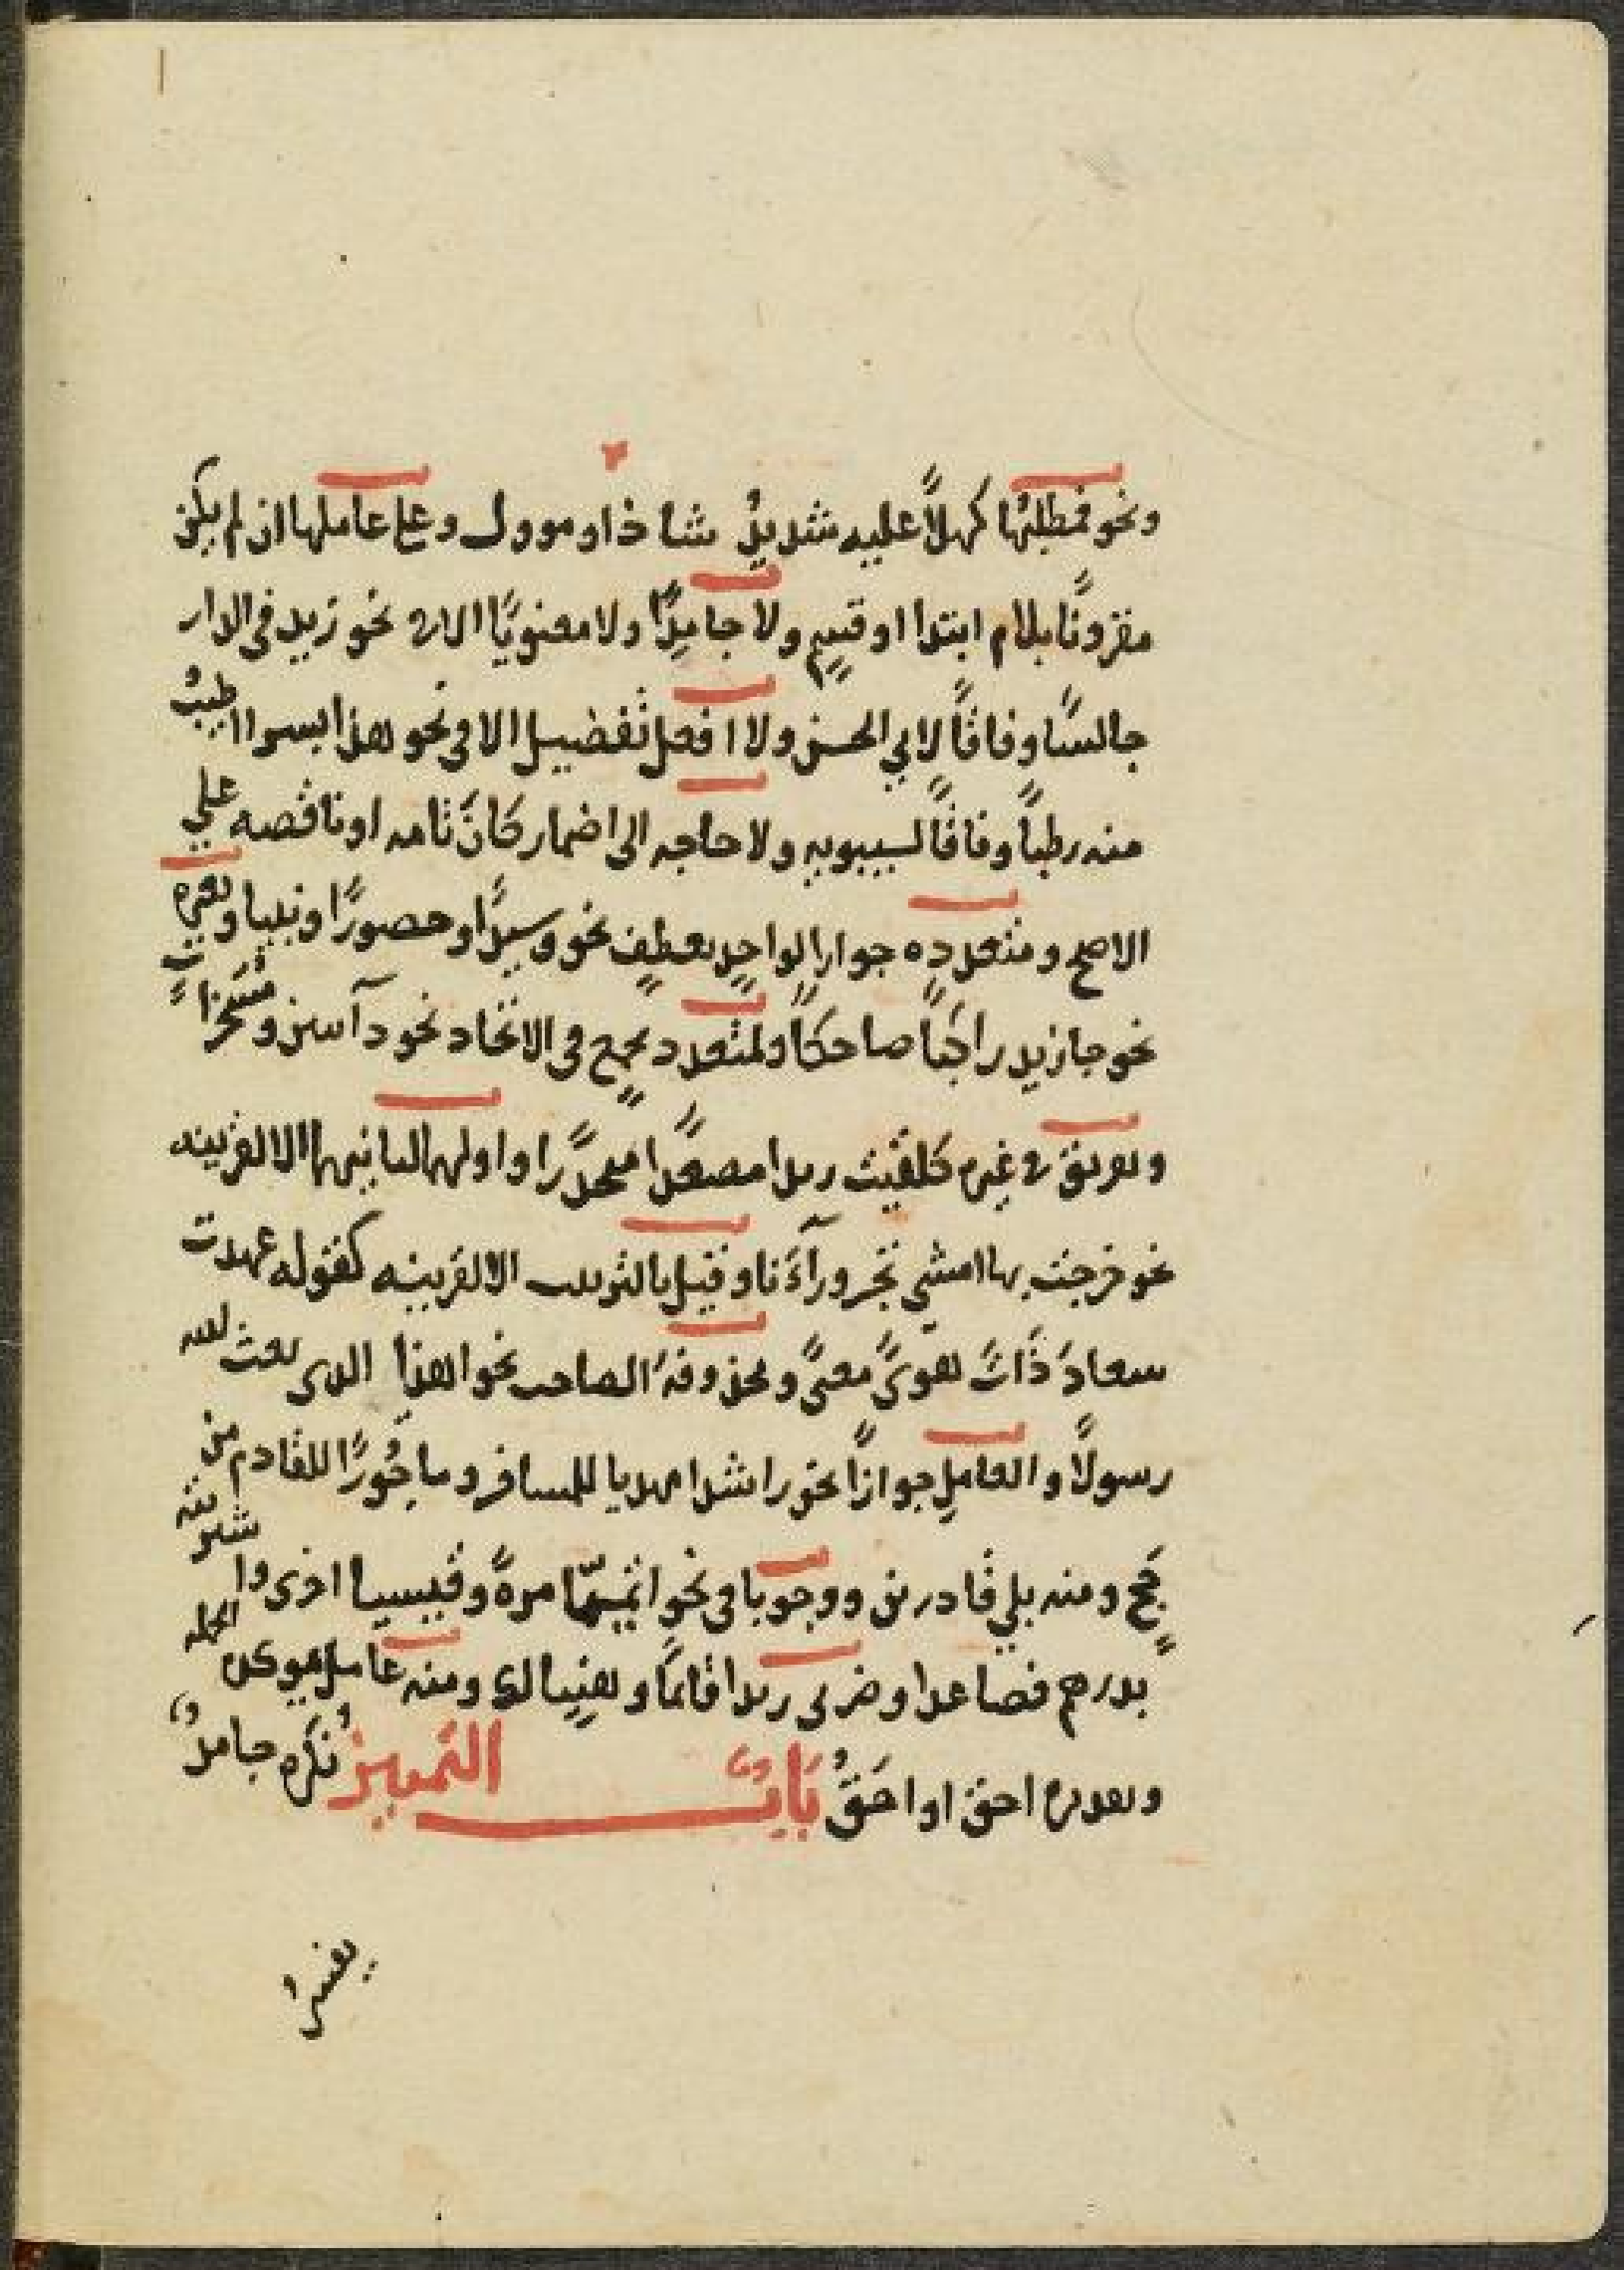 ونحو فمطلبُها كهلاً عليه شديدُ شاذ او موول وعلى عاملها ان لم يكن
مقرونًا بلام ابتدا او قسمٍ ولا جامدًا ولا معنويًا الا في نحو زيد في الدار
جالسًا وفاقًا لابي الحسن ولا افعل تفضيل الا في نحو هذا بسرا اطيبُ
منه رطبًا وفاقًا لسيبويه ولا حاجه الى اضمار كانَ تامه او ناقصه على
الاصح ومتعدده جوازا لواحدٍ بعطفٍ نحو وسيدًا وحصورًا ونبيا وبغيره
نحو جا زيد راكبًا ضاحكًا ولمتعدد بجمعٍ في الاتحاد نحو دآئبين ومسخراتٍ
وبتفريق في غيره كلقيت زيدا مصعدًا منحدرًا واولهما لثانيهما الا لقرينه
نحو خرجت بها امشي تجر ورآءَنا وقيل بالترتيب الا لقرينه كقوله عهدت
سعادَ ذَاتَ هوىً معنىً ومحذوفهَ الصاحب نحو اهذا الذى بعث الله
رسولًا والعاملِ جوازًا نحو راشدا مهديا للمسافر وماجُورًا للقادم من
حجٍ ومنه بلى قادرين ووجوبا في نحو اتميميًّا مرةً وقيسيا اخرى واشتريته
بدرهم فصاعدا وضربى زيدا قائمًا وهنيا لك ومنه عامل موكدة الجمله
وتقديره احق او احَقُّ بَابُ التمييز نكره جامدٌ
يفسرُ